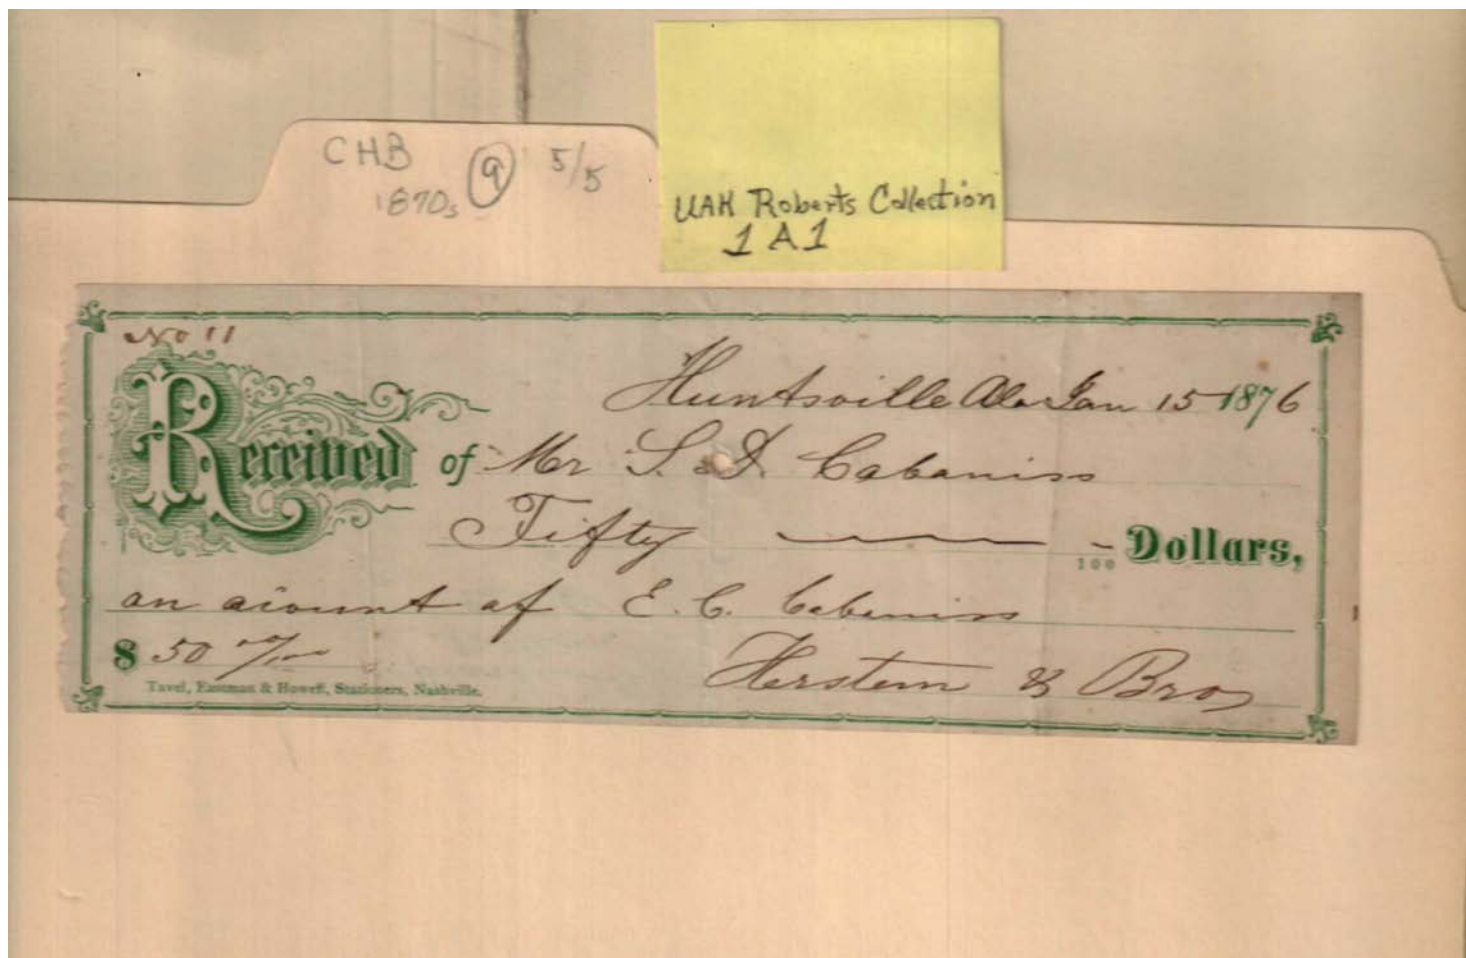 CHB 9 5/5
1870s
UAH Roberts Collection
1 A 1
No 11
Huntsville Ala Jan 15 1876
Received of Mr S. D. Cabaniss
Fifty — 100 Dollars,
on acount of E. C. Cabaniss
$ 50
Herstein & Bro
Tavel, Eastman & Howell, Stationers, Nashville.